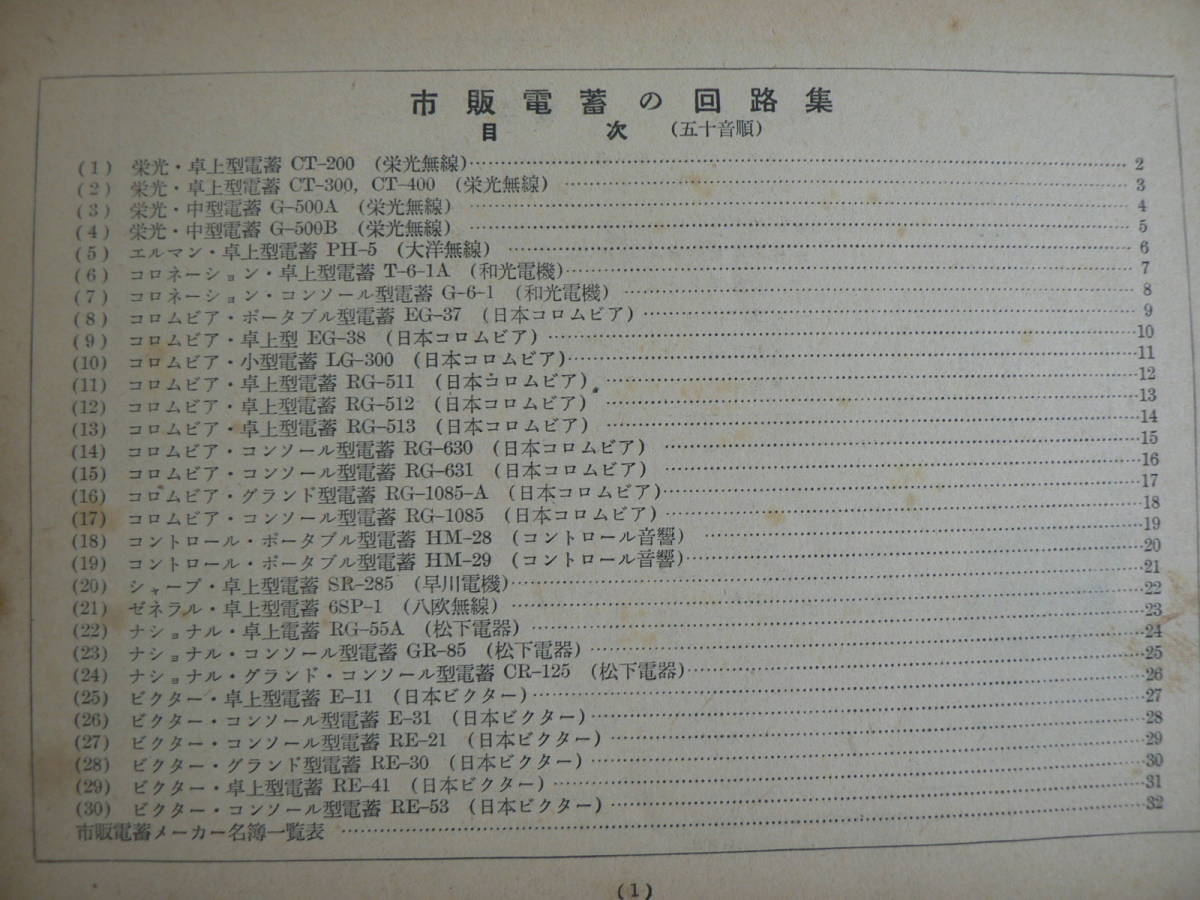 市販電蓄の回路集
目次 (五十音順)
(1) 栄光・卓上型電蓄 CT-200 (栄光無線)…2
(2) 栄光・卓上型電蓄 CT-300, CT-400 (栄光無線)…3
(3) 栄光・中型電蓄 G-500A (栄光無線)…4
(4) 栄光・中型電蓄 G-500B (栄光無線)…5
(5) エルマン・卓上型電蓄 PH-5 (大洋無線)…6
(6) コロネーション・卓上型電蓄 T-6-1A (和光電機)…7
(7) コロネーション・コンソール型電蓄 G-6-1 (和光電機)…8
(8) コロムビア・ポータブル型電蓄 EG-37 (日本コロムビア)…9
(9) コロムビア・卓上型 EG-38 (日本コロムビア)…10
(10) コロムビア・小型電蓄 LG-300 (日本コロムビア)…11
(11) コロムビア・卓上型電蓄 RG-511 (日本コロムビア)…12
(12) コロムビア・卓上型電蓄 RG-512 (日本コロムビア)…13
(13) コロムビア・卓上型電蓄 RG-513 (日本コロムビア)…14
(14) コロムビア・コンソール型電蓄 RG-630 (日本コロムビア)…15
(15) コロムビア・コンソール型電蓄 RG-631 (日本コロムビア)…16
(16) コロムビア・グランド型電蓄 RG-1085-A (日本コロムビア)…17
(17) コロムビア・コンソール型電蓄 RG-1085 (日本コロムビア)…18
(18) コントロール・ポータブル型電蓄 HM-28 (コントロール音響)…19
(19) コントロール・ポータブル型電蓄 HM-29 (コントロール音響)…20
(20) シャープ・卓上型電蓄 SR-285 (早川電機)…21
(21) ゼネラル・卓上型電蓄 6SP-1 (八欧無線)…22
(22) ナショナル・卓上電蓄 RG-55A (松下電器)…23
(23) ナショナル・コンソール型電蓄 GR-85 (松下電器)…24
(24) ナショナル・グランド・コンソール型電蓄 CR-125 (松下電器)…25
(25) ビクター・卓上型電蓄 E-11 (日本ビクター)…26
(26) ビクター・コンソール型電蓄 E-31 (日本ビクター)…27
(27) ビクター・コンソール型電蓄 RE-21 (日本ビクター)…28
(28) ビクター・グランド型電蓄 RE-30 (日本ビクター)…29
(29) ビクター・卓上型電蓄 RE-41 (日本ビクター)…30
(30) ビクター・コンソール型電蓄 RE-53 (日本ビクター)…31
市販電蓄メーカー名簿一覧表…32
(1)